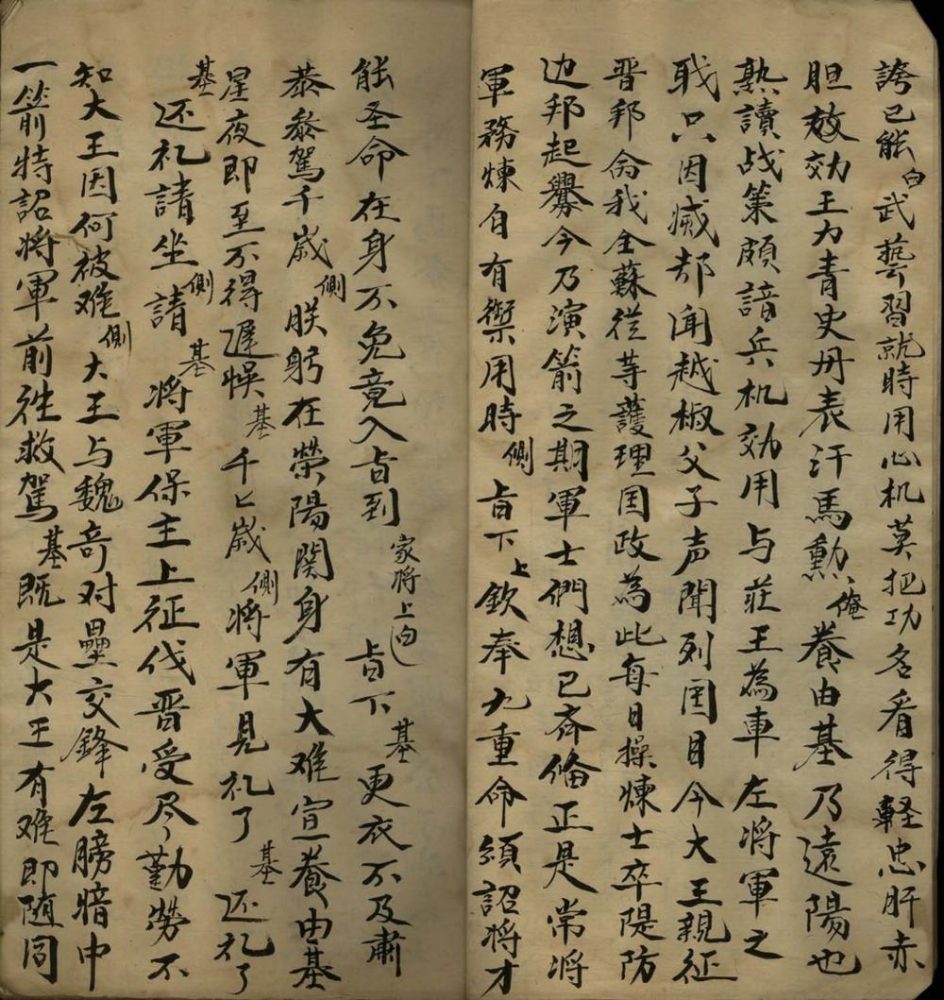 誇已能白武藝習就時用心机莫把功名看得軽忠肝赤
胆效効王力青史丹表汗馬勲俺養由基乃遠陽也
熟讀战策頗諳兵机効用与莊王為車左將軍之
戝只因滅却闻越椒父子声聞列国目今大王親征
晋邦命我仝蘇従䓁護理国政為此每日操煉士卒隄防
边邦起釁今乃演箭之期軍士們想已斉俻正是常将
軍務煉自有用時側旨下上欽奉九重命頒詔将才
能圣命在身不免竟入旨到家将上白旨下基更衣不及肅
恭叅駕千歳側朕躬在荣陽関身有大难宣養由基
星夜即至不得遲悮基千匕歳側将軍見礼了基还礼了
基还礼請坐側請基将軍保主上征伐晋受尽勤勞不
知大王因何被难側大王与魏竒对壘交鋒左膀暗中
一箭特詔将軍前徃救駕基既是大王有难即随同